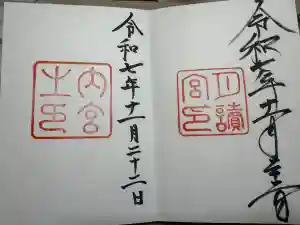 令和七年十一月
月讀
宮印
令和七年十一月二十二日
内宮
之印